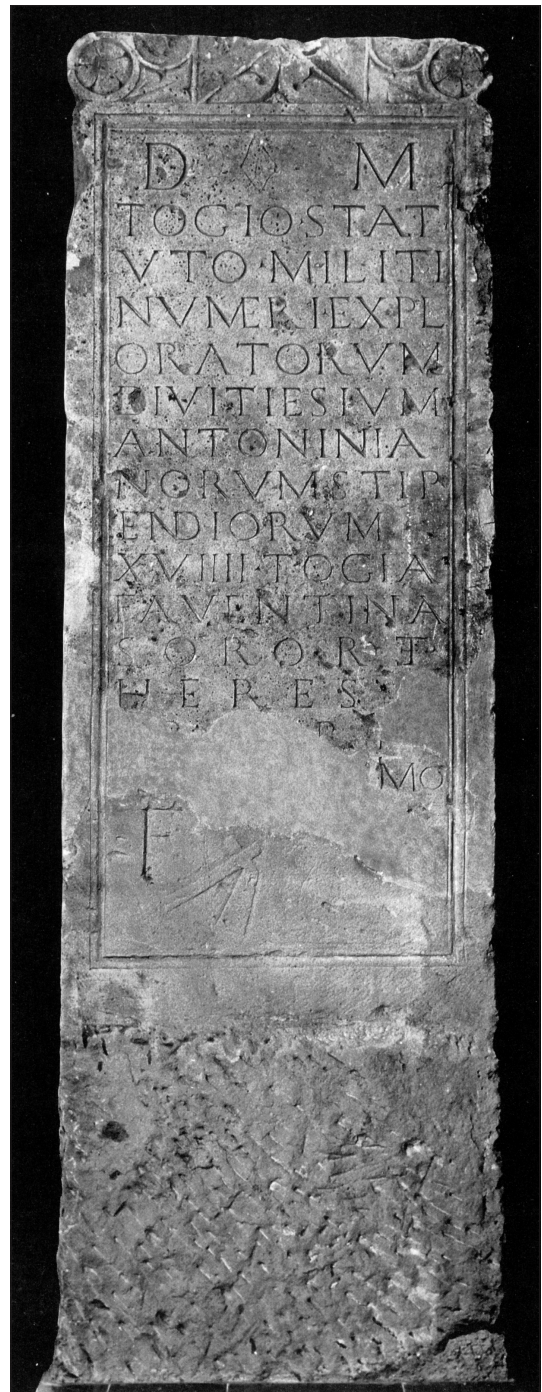 D M
TOGIO·STAT
VTO·MILITI
NVMERI EXPL
ORATORVM
DIVITIESIVM
ANTONINIA
NORVM STIP
ENDIORVM
XVIIII·TOGIA
FAVENTINA
SOROR T
HERES
MO
F